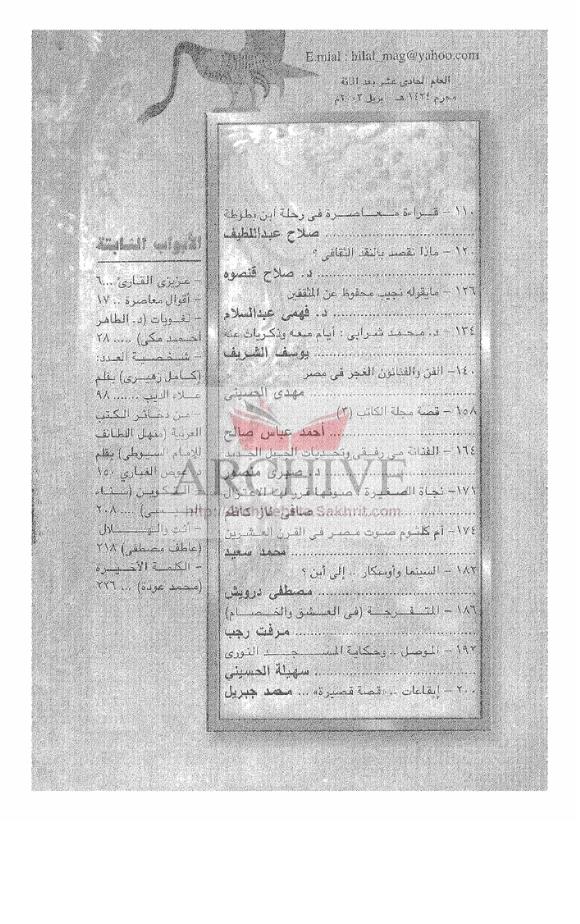 E.mial : hilal_mag@yahoo.com
العام الحادى عشر بعد المائة
محرم ١٤٢٤ هـ - بريل ٢٠٠٣م
١١٠ - قراءة معاصرة فى رحلة ابن بطوطة
صلاح عبداللطيف
١٢٠ - ماذا نقصد بالنقد الثقافى ؟
د. صلاح قنصوه
١٢٦ - مايقوله نجيب محفوظ عن المثقفين
د. فهمى عبدالسلام
١٣٤ - د. محمد شرابى : أيام معه وذكريات عنه
يوسف الشريف
١٤٠ - الفن والفنانون الغجر فى مصر
مهدى الحسينى
١٥٨ - قصة مجلة الكاتب (٣)
أحمد عباس صالح
١٦٤ - الفنانة مى رفقى وتحديات الجيل الجديد
د. صبرى منصور
١٧١ - نجاة الصغيرة .. صوتها قررت الاعتزال
صافى ناز كاظم
١٧٤ - أم كلثوم صوت مصر فى القرن العشرين
محمد سعيد
١٨٢ - السينما وأوسكار .. إلى أين ؟
مصطفى درويش
١٨٦ - المتفرجة (فى العشق والخصام)
مرفت رجب
١٩٢ - الموصل .. وحكاية المسجد النورى
سهيلة الحسينى
٢٠٠ - إيقاعات .. «قصة قصيرة» ... محمد جبريل
الأبواب الثابتة
- عزيزى القارئ ...٦
- أقوال معاصرة .. ١٧
- لغويات (د. الطاهر
أحمد مكى) ..... ٢٨
- شخصية العدد:
(كامل زهيرى) بقلم
علاء الديب ...... ٩٨
- من ذخائر الكتب
العربية (منهل اللطائف
للإمام السيوطى) بقلم
د. عوض الغبارى ١٥٠
- التكوين (سناء
.... ٢٠٨
- أنت والهلال
(عاطف مصطفى) ٢١٨
- الكلمة الأخيرة
(محمد عودة) ... ٢٢٦
ARCHIVE
http://Archivebeta.Sakhrit.com